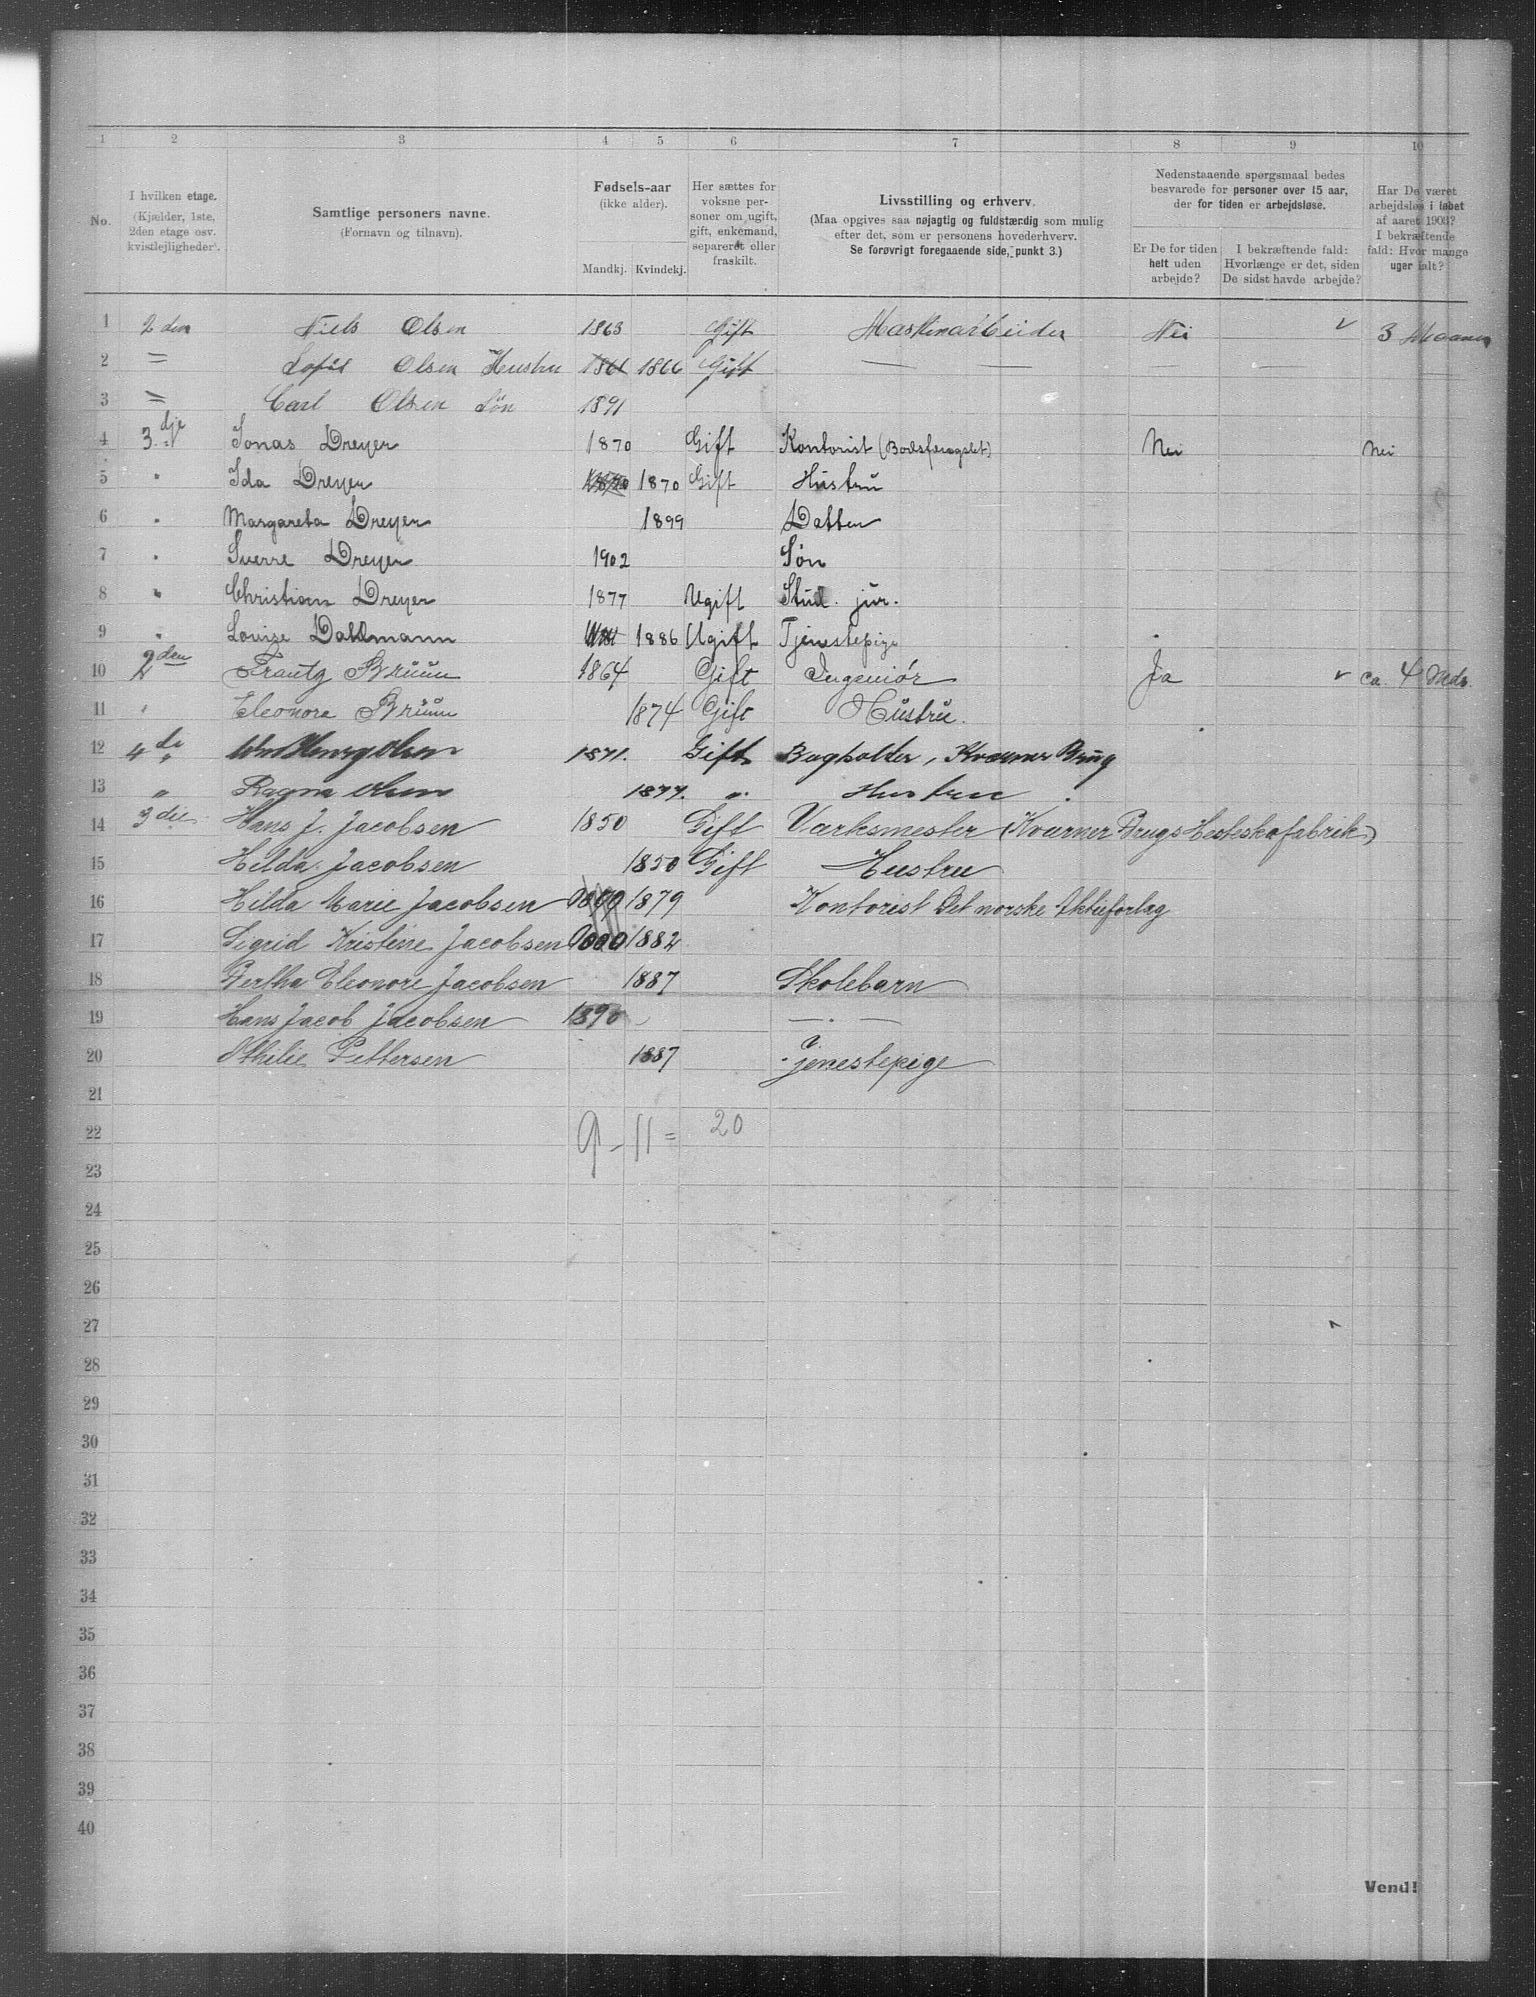 1 2 3 4 5 6 7 8 9 10
No.
I hvilken etage.
(Kjælder, 1ste,
2den etage osv.
kvistlejligheder).
Samtlige personers navne.
(Fornavn og tilnavn).
Fødsels-aar
(ikke alder).
Mandkj. Kvindekj.
Her sættes for
voksne per-
soner om ugift,
gift, enkemand,
separeret eller
fraskilt.
Livsstilling og erhverv.
(Maa opgives saa nøjagtig og fuldstærdig som mulig
efter det, som er personens hovederhverv.
Se forøvrigt foregaaende side, punkt 3.)
Nedenstaaende spørgsmaal bedes
besvarede for personer over 15 aar,
der for tiden er arbejdsløse.
Er De for tiden
helt uden
arbejde?
I bekræftende fald:
Hvorlænge er det, siden
De sidst havde arbejde?
Har De været
arbejdsløs i løbet
af aaret 1903?
I bekræftende
fald: Hvor mange
uger ialt?
1 2 den Niels Olsen 1863 Gift Maskinarbeider Nei 3 Maaner
2 = Sofie Olsen Hustru 1861 1866 Gift — —
3 = Carl Olsen Søn 1891
4 3. dje Jonas Dreyer 1870 Gift Kontorist (Bodsfængslet) Nei Nei
5 " Ida Dreyer 1870 1870 Gift Hustru
6 " Margareta Dreyer 1899 Datter
7 " Sverre Dreyer 1902 Søn
8 " Christian Dreyer 1877 Ugift Stud. jur.
9 " Louise Dahlmann 1886 Ugift Tjenestepige
10 2 den Frantz Bruun 1864 Gift Ingeniør Ja ca. 4 Mdr.
11 " Eleonora Bruun 1874 Gift Hustru.
12 4 de Wm Henry Olsen 1871. Gift Bogholder, Kværner Brug
13 " Ragna Olsen 1877. " Hustru
14 3 die Hans J. Jacobsen 1850 Gift Værksmester (Kværner Brugs Hesteskofabrik)
15 Hilda Jacobsen 1850 Gift Hustru
16 Hilda Marie Jacobsen 1879 Kontorist Det norske Aktieforlag
17 Sigrid Kristine Jacobsen 1882
18 Bertha Eleonore Jacobsen 1887 Skolebarn
19 Hans Jacob Jacobsen 1890 — " —
20 Othilie Pettersen 1887 Tjenestepige
21
22 9 - 11 = 20
23
24
25
26
27
28
29
30
31
32
33
34
35
36
37
38
39
40
Vend!